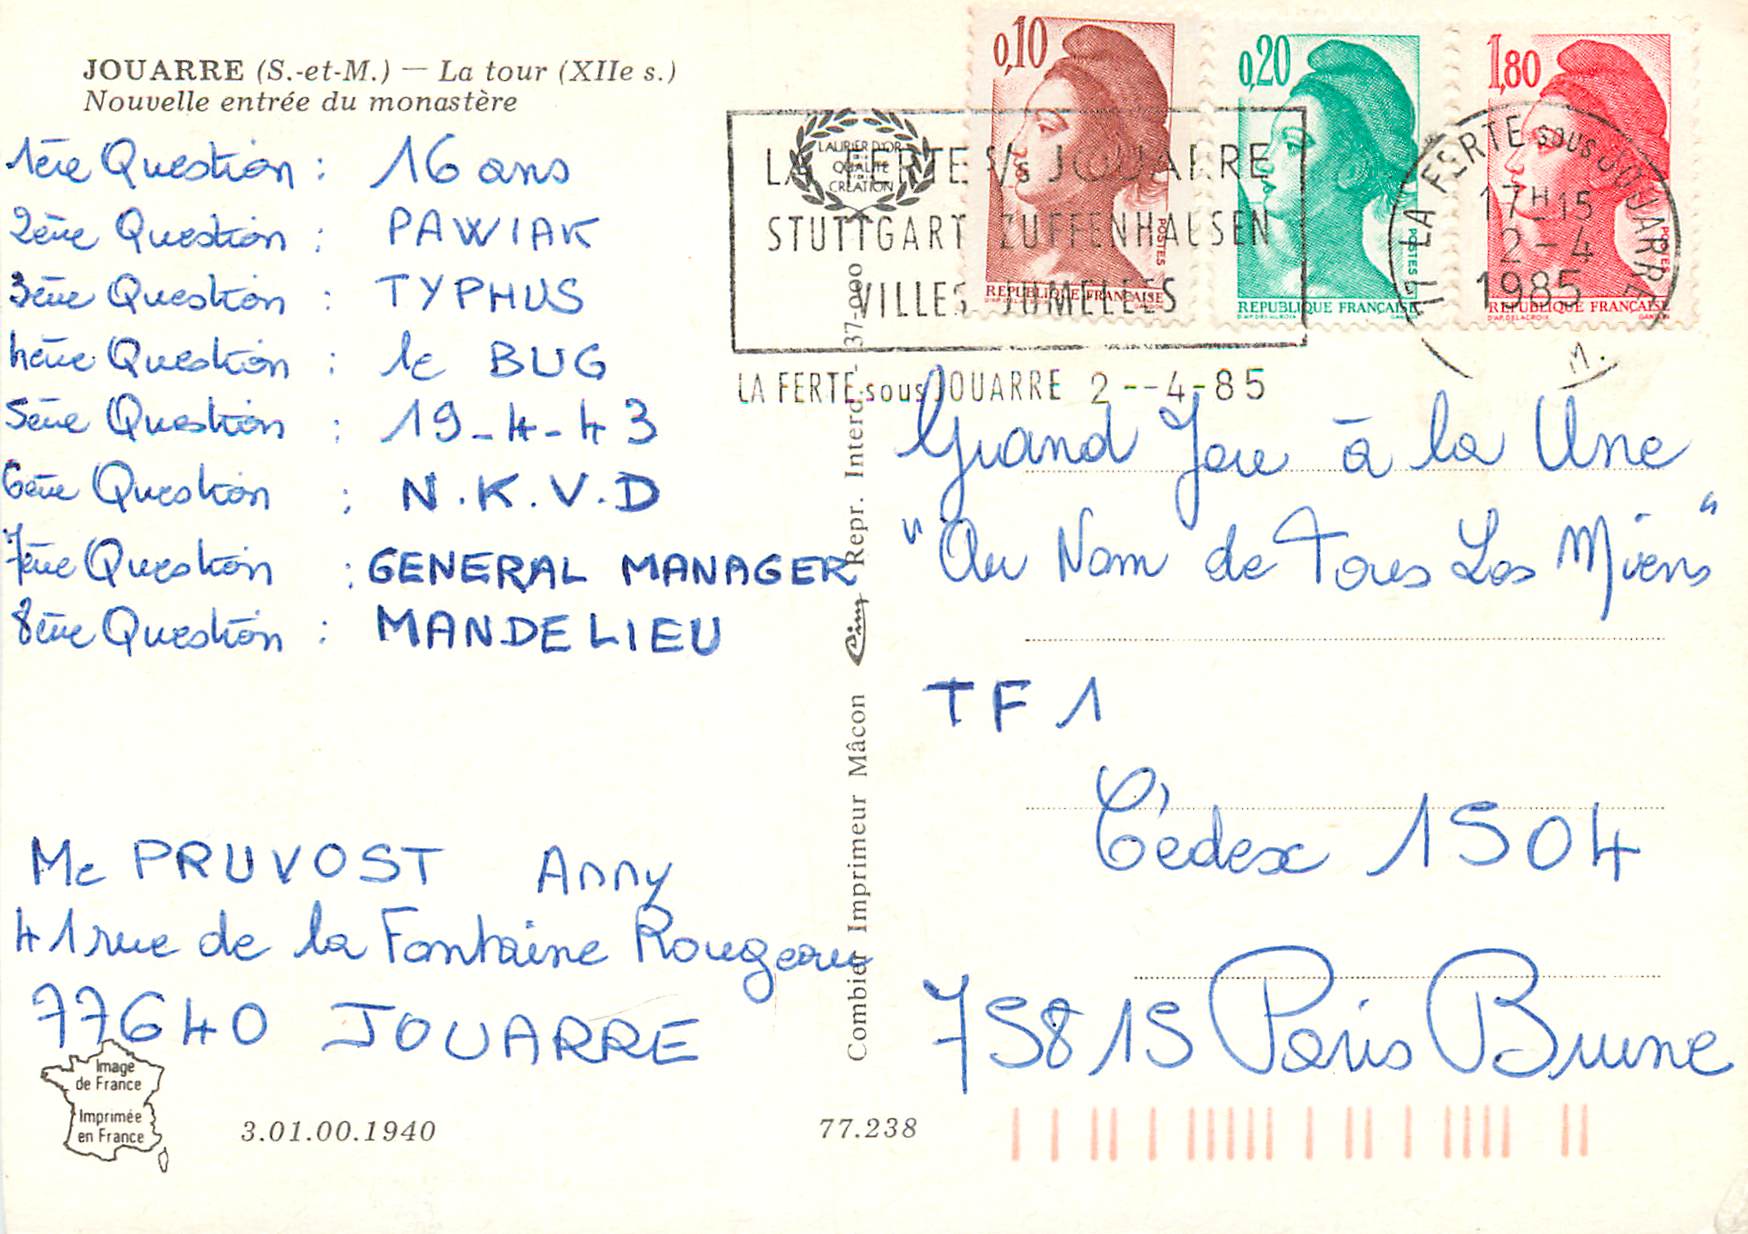 JOUARRE (S.-et-M.) — La tour (XIIe s.)
Nouvelle entrée du monastère
1ère Question : 16 ans
2ème Question : PAWIAK
3ème Question : TYPHUS
4ème Question : le BUG
5ème Question : 19-4-43
6ème Question : N.K.V.D
7ème Question : GENERAL MANAGER
8ème Question : MANDELIEU
Me PRUVOST Anny
41 rue de la Fontaine Rougeau
77640 JOUARRE
Image
de France
Imprimée
en France
3.01.00.1940
77.238
Combier Imprimeur Mâcon Cim Repr. Interd. 37-000
LAURIER D'OR
DE LA
QUALITÉ
CREATION
0,10
POSTES
REPUBLIQUE FRANÇAISE
0,20
POSTES
REPUBLIQUE FRANÇAISE
1,80
POSTES
REPUBLIQUE FRANÇAISE
LA FERTE S/s JOUARRE
STUTTGART ZUFFENHAUSEN
VILLES JUMELEES
LA FERTE sous JOUARRE 2--4-85
77 LA FERTE sous JOUARRE
17H15
2-4
1985
Grand Jeu à la Une
"Au Nom de Tous Les Miens"
TF1
Cédex 1504
75815 Paris Brune